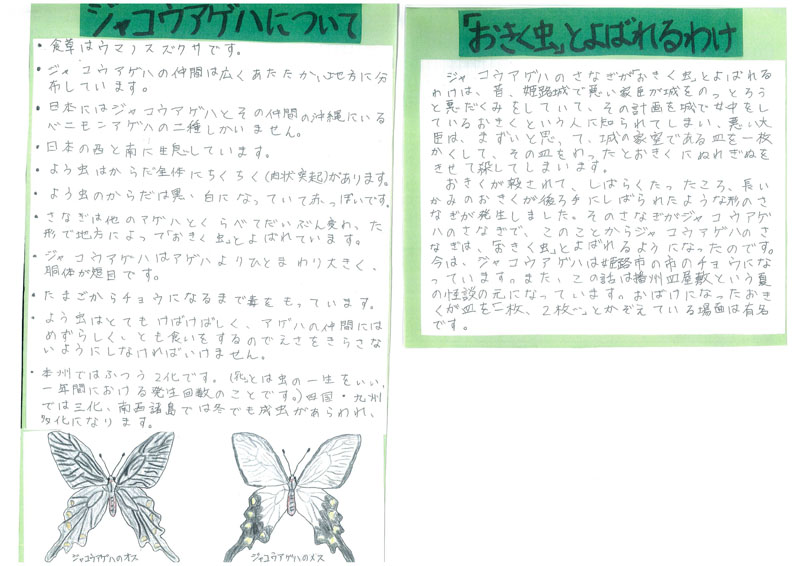 ジャコウアゲハについて
・食草はウマノスズクサです。
・ジャコウアゲハの仲間は広くあたたかい地方に分
布しています。
・日本にはジャコウアゲハとその仲間の沖縄にいる
ベニモンアゲハの二種しかいません。
・日本の西と南に生息しています。
・よう虫はからだ全体にちくちく(肉状突起)があります。
・よう虫のからだは黒、白になっていて赤っぽいです。
・さなぎは他のアゲハとくらべてだいぶん変わった
形で地方によって「おきく虫」とよばれています。
・ジャコウアゲハはアゲハよりひとまわり大きく、
胴体が赤色です。
・たまごからチョウになるまで毒をもっています。
・よう虫はとてもけばけばしく、アゲハの仲間には
めずらしく、とも食いをするのでえさをきらさな
いようにしなければいけません。
・本州ではふつう2化です。(化とは虫の一生をいい、
一年間における発生回数のことです。)四国・九州
では三化、南西諸島では冬でも成虫があらわれ、
多化になります。
ジャコウアゲハのオス
ジャコウアゲハのメス
「おきく虫」とよばれるわけ
ジャコウアゲハのさなぎが「おきく虫」とよばれる
わけは、昔、姫路城で悪い家臣が城をのっとろう
と悪だくみをしていて、その計画を城で女中をし
ているおきくという人に知られてしまい、悪い大
臣は、まずいと思って、城の家宝である皿を一枚
かくして、その皿をわったとおきくにぬれぎぬを
きせて殺してしまいます。
おきくが殺されて、しばらくたったころ、長い
かみのおきくが後ろ手にしばられたような形のさ
なぎが発生しました。そのさなぎがジャコウアゲ
ハのさなぎで、このことからジャコウアゲハのさ
なぎは、「おきく虫」とよばれるようになったのです。
今は、ジャコウアゲハは姫路市の市のチョウにな
っています。また、この話は播州皿屋敷という夏
の怪談の元になっています。おばけになったおき
くが皿を「一枚、2枚…」とかぞえている場面は有名
です。